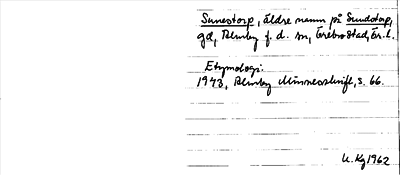 Sunestorp, äldre namn på Sundstorp,
gd, Almby f.d. sn, Örebro stad, Ör.l.
Etymologi:
1943, Almby Minnesskrift, s. 66.
K. Kg 1962